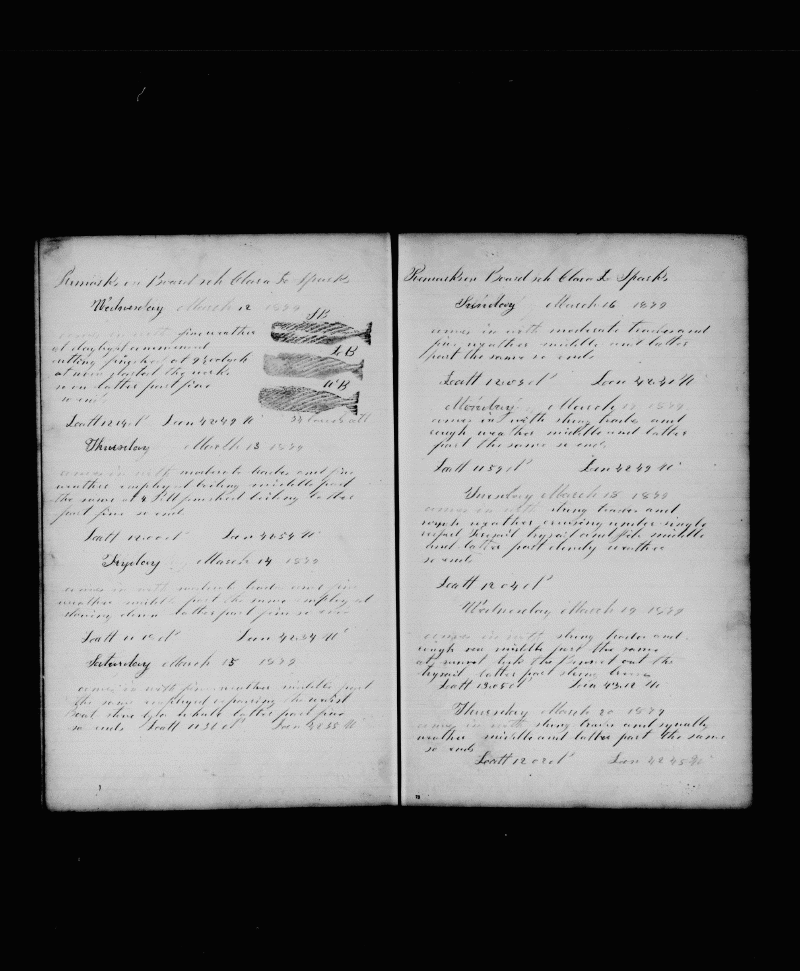 Remarks on Board sch Clara L Sparks
Wednesday March 12 1879
comes in with fine weather
at daylight commenced
cutting finished at 9 oclock
at noon started the works
so on latter part fine
so ends
SB
LB
WB
Latt 12 19 Lon 42 49 W
Thursday March 13 1879
comes in with moderate trades and fine
weather employed boiling middle part
the same at 4 PM finished boiling latter
part fine so ends
Latt 12 00 Lon 42 54 W
Fryday March 14 1879
comes in with moderate trades and fine
weather middle part the same employed
stowing down latter part fine so ends
Latt 11 19 Lon 42 34 W
Saturday March 15 1879
comes in with fine weather middle part
the same employed repairing the waist
Boat latter part fine
so ends Latt 11 38 Lon 42 35 W
Remarks on Board sch Clara L Sparks
Sunday March 16 1879
comes in with moderate trades and
fine weather middle and latter
part the same so ends
Latt 12 03 Lon 42 41 W
Monday March 17 1879
comes in with strong trades and
rough weather middle and latter
part the same so ends
Latt 11 59 Lon 42 49 W
Tuesday March 18 1879
comes in with strong trades and
rough weather cruising under single
reefed Foresail trysail and jib middle
and latter part cloudy weather
so ends
Latt 12 04
Wednesday March 19 1879
comes in with strong trades and
rough sea middle part the same
at the out the
trysail latter part strong trades
Latt 13 05 Lon 43 12 W
Thursday March 20 1879
comes in with strong trades and squally
weather middle and latter part the same
so ends
Latt 12 02 Lon 42 45 W